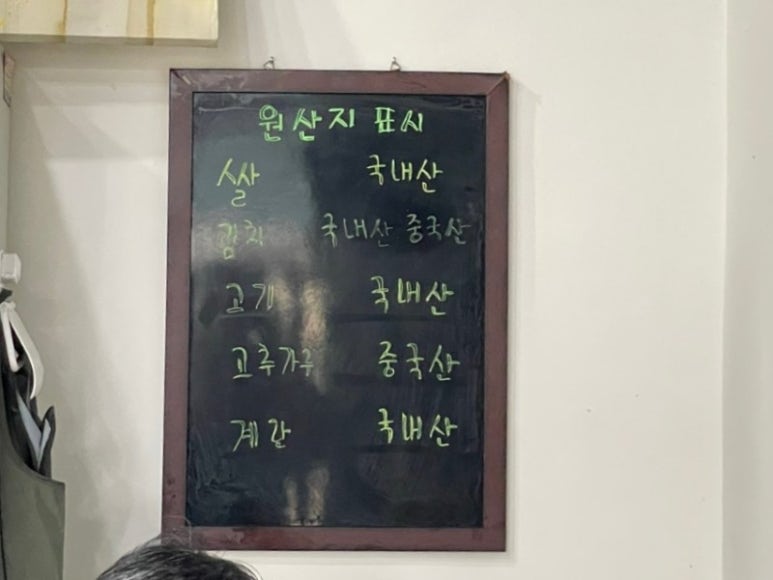 원산지 표시
쌀 국내산
김치 국내산 중국산
고기 국내산
고추가루 중국산
계란 국내산